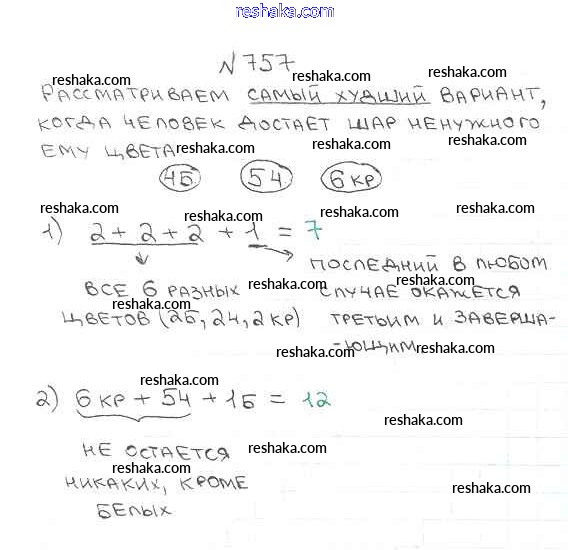 reshaka.com
№757
reshaka.com reshaka.com reshaka.com
РАССМАТРИВАЕМ САМЫЙ ХУДШИЙ ВАРИАНТ,
reshaka.com reshaka.com
КОГДА ЧЕЛОВЕК ДОСТАЕТ ШАР НЕНУЖНОГО
ЕМУ ЦВЕТА reshaka.com reshaka.com
4Б 5Ч 6 КР
reshaka.com reshaka.com reshaka.com
1) 2 + 2 + 2 + 1 = 7
ПОСЛЕДНИЙ В ЛЮБОМ
reshaka.com reshaka.com
ВСЕ 6 РАЗНЫХ СЛУЧАЕ ОКАЖЕТСЯ
ЦВЕТОВ (2Б, 2Ч, 2 КР) ТРЕТЬИМ И ЗАВЕРША-
reshaka.com reshaka.com
-ЮЩИМ
reshaka.com reshaka.com
reshaka.com
2) 6 КР + 5Ч + 1Б = 12
НЕ ОСТАЕТСЯ reshaka.com reshaka.com
reshaka.com
НИКАКИХ, КРОМЕ
reshaka.com
БЕЛЫХ